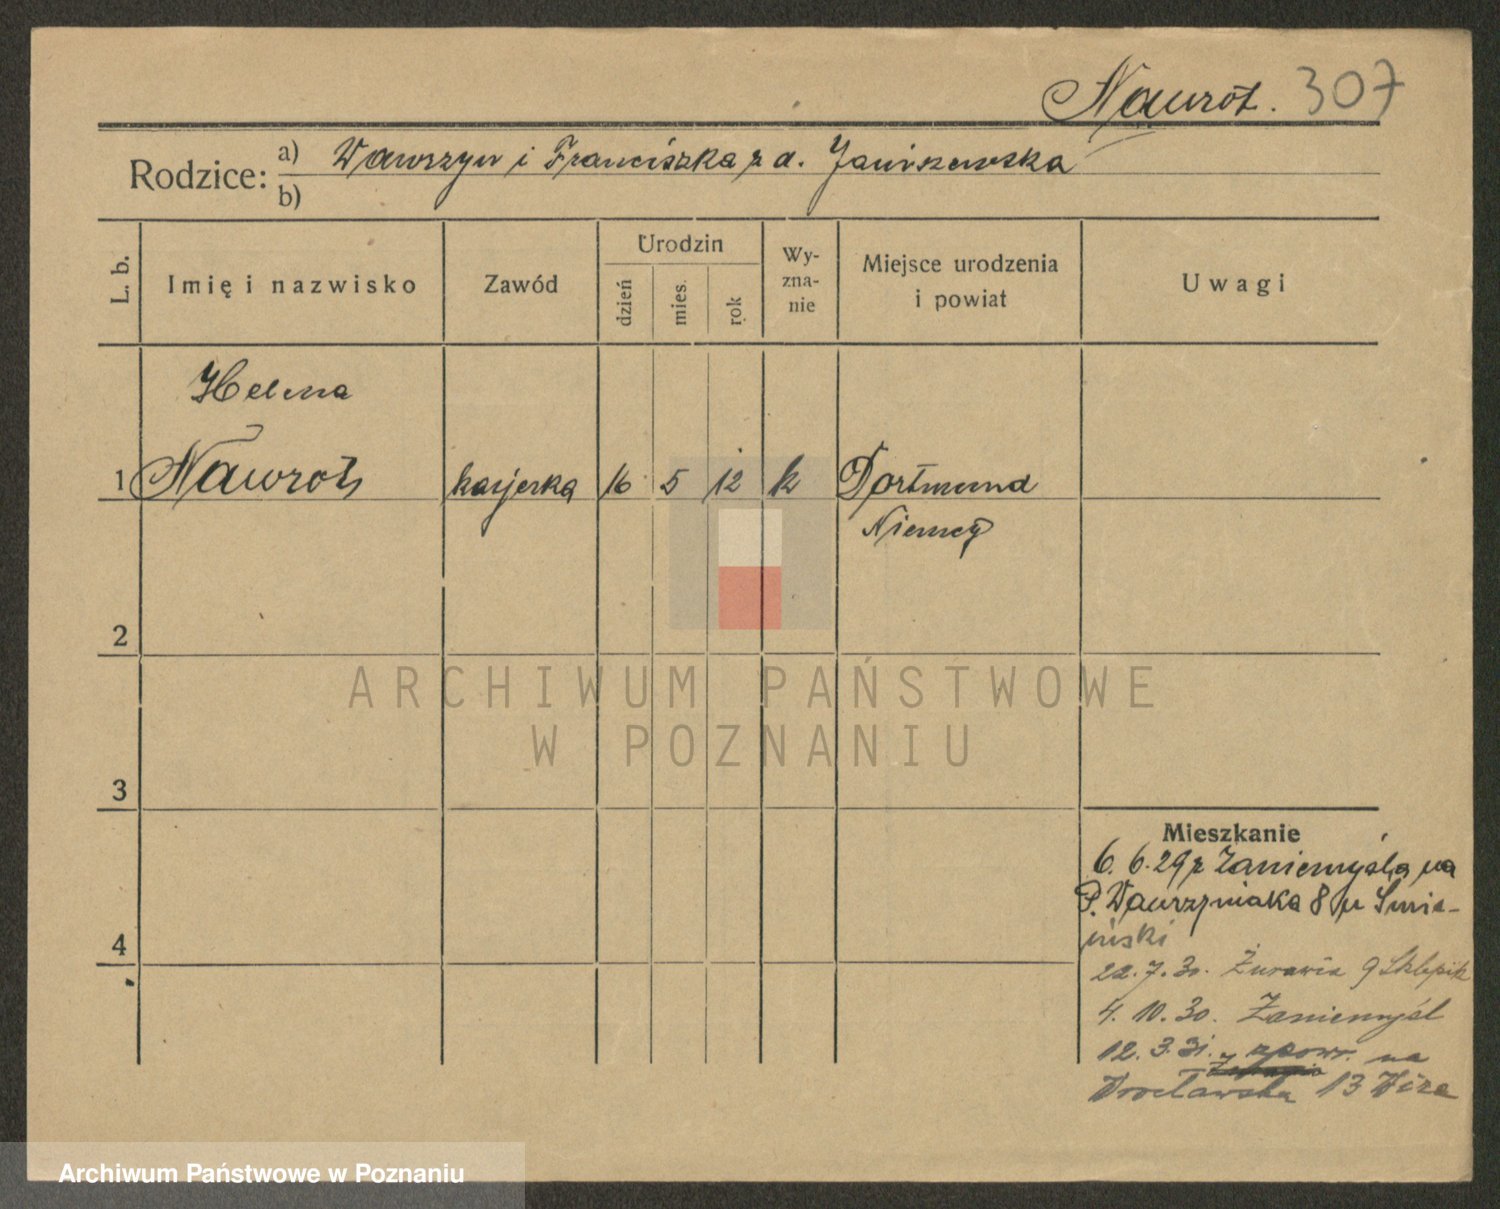 Nawrot. 307
Rodzice: a) Wawrzyn i Franciszka z d. Janiszewska
b)
L. b. Imię i nazwisko Zawód Urodzin dzień mies. rok Wy-zna-nie Miejsce urodzenia i powiat Uwagi
Helena
1 Nawrot kasjerka 16 5 12 k Dortmund
Niemcy
2
ARCHIWUM PAŃSTWOWE
W POZNANIU
3
Mieszkanie
6. 6. 29 z Zaniemyśla na
P. Wawrzyniaka 8 u
4
22. 7. 30. Żurawia 9 Sklepik
4. 10. 30. Zaniemyśl
12. 3. 31. z powr. na
Wrocławska 13
Archiwum Państwowe w Poznaniu